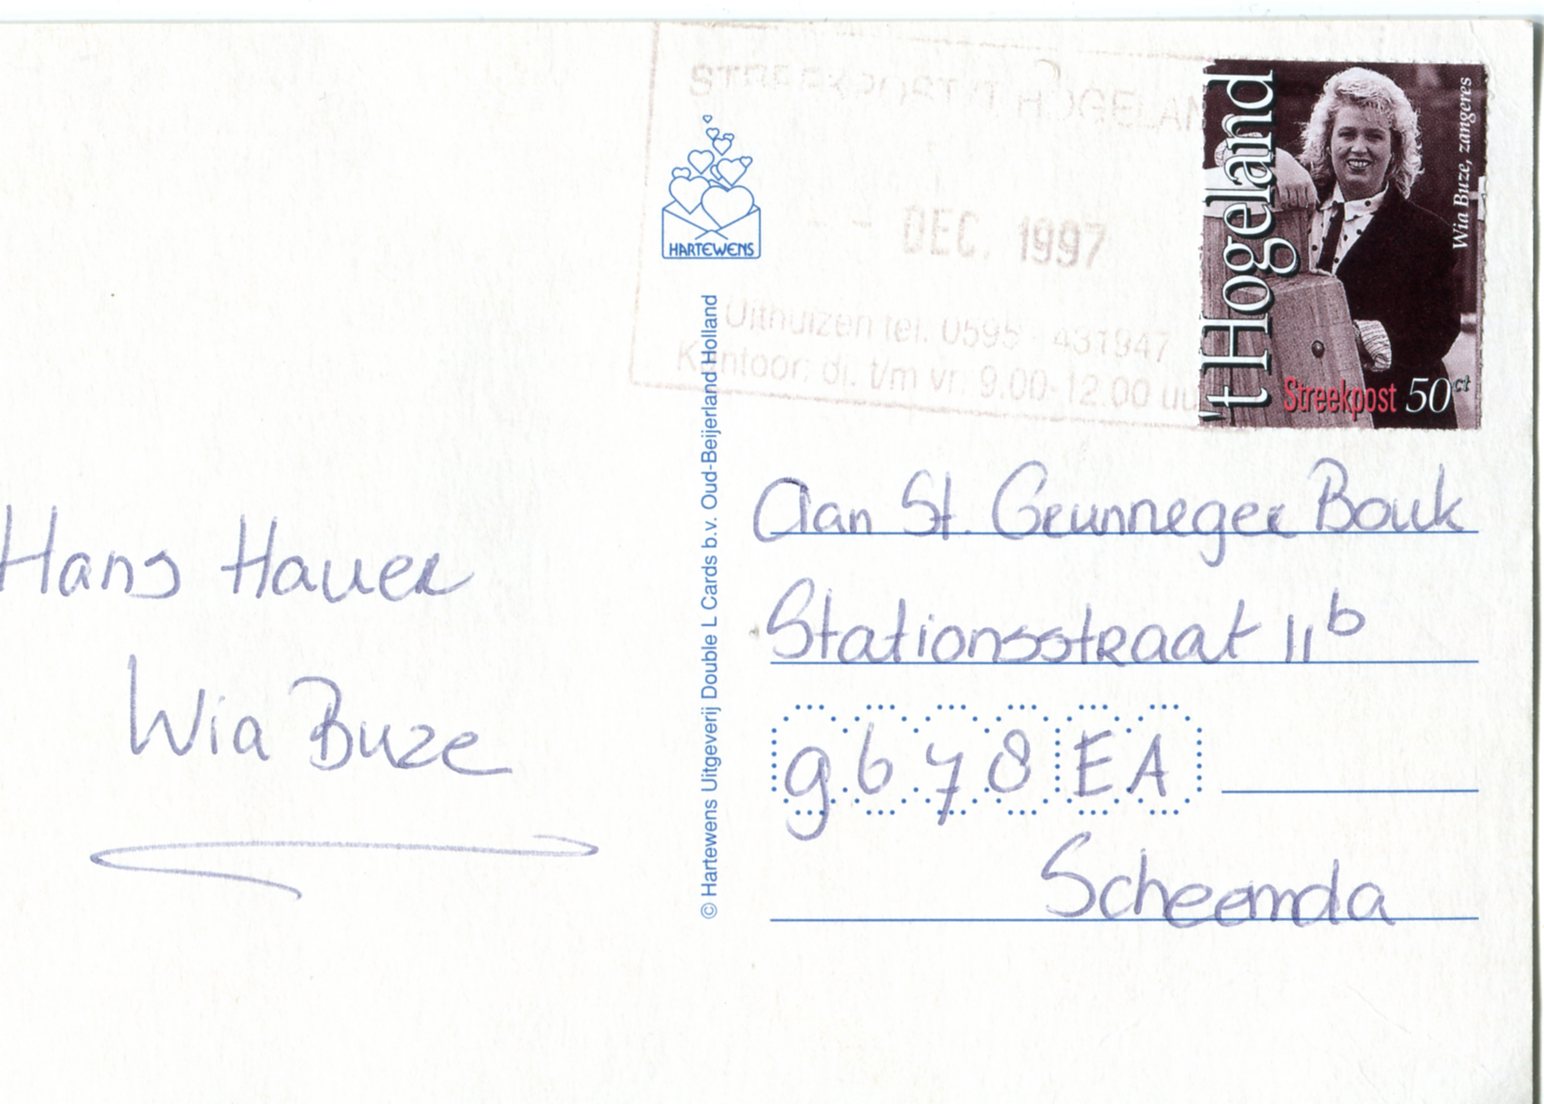 STREEKPOST 'T HOGELAND
- - DEC. 1997
Uithuizen tel. 0595 - 431947
Kantoor: di. t/m vr. 9.00-12.00 uur
HARTEWENS
© Hartewens Uitgeverij Double L Cards b.v. Oud-Beijerland Holland
't Hogeland
Wia Buze, zangeres
Streekpost 50 ct
Hans Hauer
Wia Buze
Aan St. Grunneger Bouk
Stationsstraat 11b
9678 EA
Scheemda